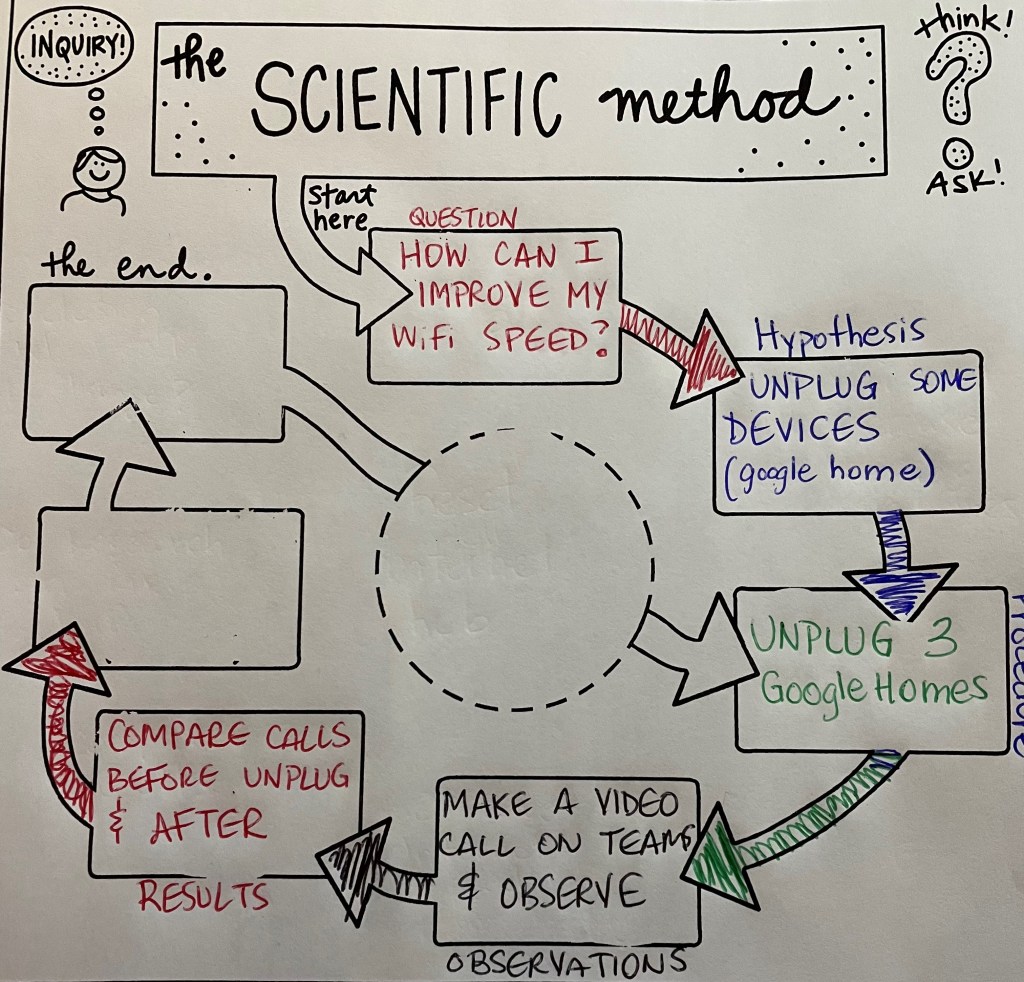 INQUIRY!
the SCIENTIFIC method
think!
ASK!
start
here
QUESTION
HOW CAN I
IMPROVE MY
WiFi SPEED?
Hypothesis
UNPLUG SOME
DEVICES
(google home)
PROCEDURE
UNPLUG 3
Google Homes
MAKE A VIDEO
CALL ON TEAMS
& OBSERVE
OBSERVATIONS
COMPARE CALLS
BEFORE UNPLUG
& AFTER
RESULTS
the end.